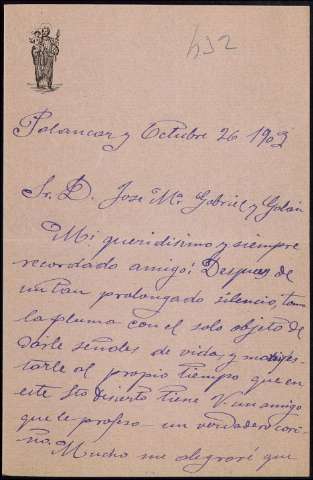 452
Palancar y Octubre 26 1903
Sr. D. Jose Mª Gabriel y Galán
Mi queridisimo y siempre
recordado amigo: Despues de
un tan prolongado silencio, tomo
la pluma con el solo objeto de
darle señales de vida, y manifes-
tarle al propio tiempo que en
este Sto Disierto tiene V. un amigo
que le profesa un verdadero cari-
ño.
Mucho me alegraré que